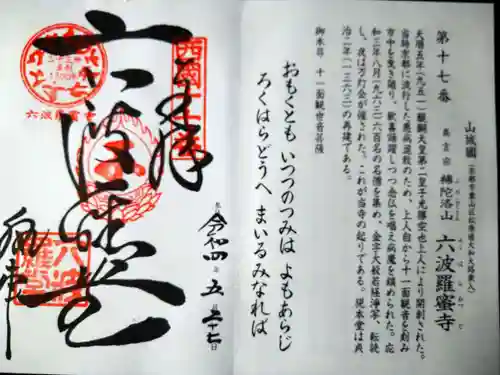 第十七番
山城國（京都市東山区松原通大和大路東入）
真言宗 補陀洛山 六波羅蜜寺
ふだらくさん ろくはらみつじ
天暦五年（九五一）醍醐天皇第二皇子光勝空也上人により開創された。
当時京都に流行した悪病退散のため、上人自から十一面観音を刻み
市中を曳き廻り、歓喜踊躍しつつ念仏を唱え病魔を鎮められた。応
和三年八月（九六三）六百名の名僧を集め、金字大般若経浄写、転読
し、夜は万灯会が催された。これが当寺の起りである。現本堂は貞
治二年（一三六三）の再建である。
御本尊 十一面観世音菩薩
おもくとも いつつのつみは よもあらじ
ろくはらどうへ まいるみなれば
奉拝
令和四年五月二十七日
西國十七番
六波羅堂
六波羅蜜寺